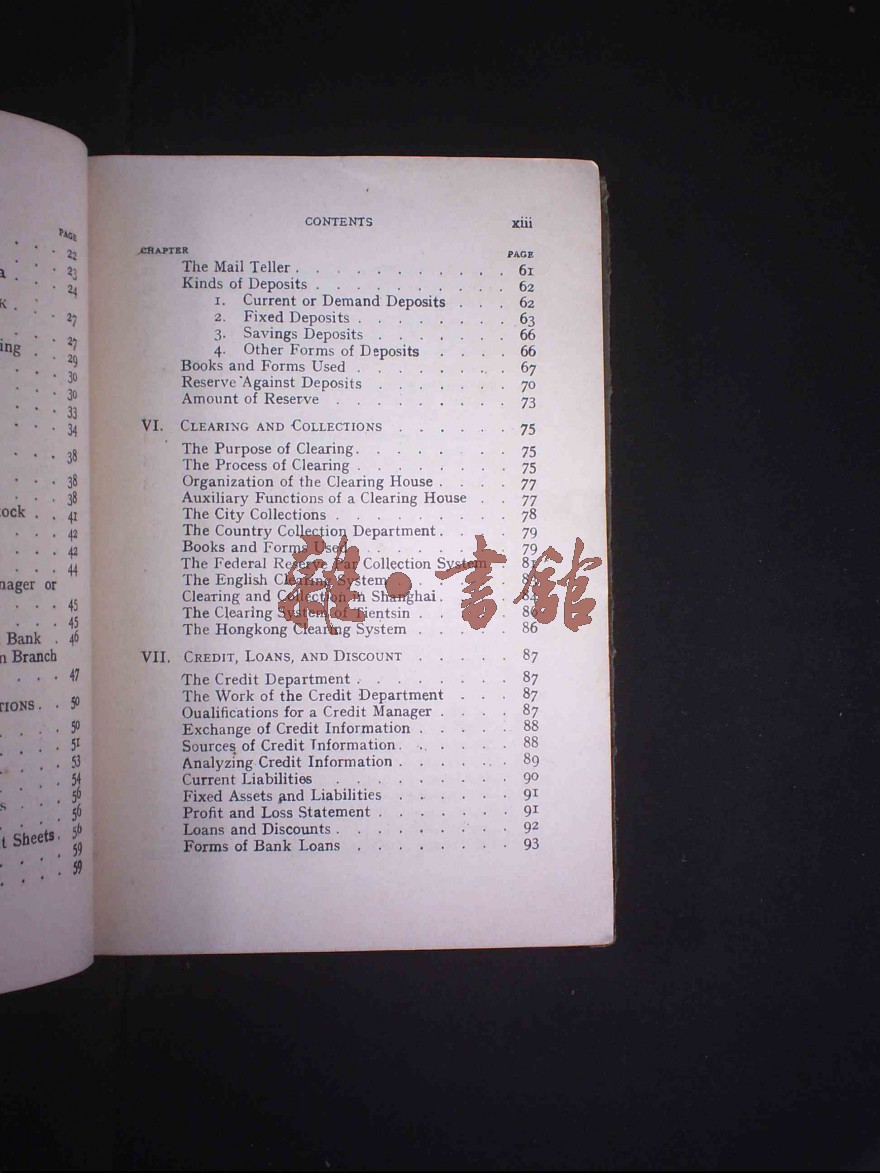 PAGE
22
23
24
27
27
ing . . 29
30
30
33
34
38
38
38
ock . . 41
42
42
44
nager or
45
45
Bank . 46
n Branch
47
TIONS . . 50
50
51
53
54
56
56
t Sheets . 56
59
59
CONTENTS xiii
CHAPTER PAGE
The Mail Teller . . . . . . . . . . . 61
Kinds of Deposits . . . . . . . . . . 62
1. Current or Demand Deposits . . . 62
2. Fixed Deposits . . . . . . . . 63
3. Savings Deposits . . . . . . . 66
4. Other Forms of Deposits . . . . 66
Books and Forms Used . . . . . . . . 67
Reserve Against Deposits . . . . . . . 70
Amount of Reserve . . . . . . . . . 73
VI. CLEARING AND COLLECTIONS . . . . . . 75
The Purpose of Clearing . . . . . . . . 75
The Process of Clearing . . . . . . . . 75
Organization of the Clearing House . . . . 77
Auxiliary Functions of a Clearing House . . 77
The City Collections . . . . . . . . . 78
The Country Collection Department . . . . 79
Books and Forms Used . . . . . . . . 79
The Federal Reserve Par Collection System . 81
The English Clearing System
Clearing and Collection in Shanghai . . . . 84
The Clearing System of Tientsin . . . . . 86
The Hongkong Clearing System . . . . . 86
VII. CREDIT, LOANS, AND DISCOUNT . . . . . 87
The Credit Department . . . . . . . . 87
The Work of the Credit Department . . . 87
Qualifications for a Credit Manager . . . . 87
Exchange of Credit Information . . . . . 88
Sources of Credit Information . . . . . . 88
Analyzing Credit Information . . . . . . 89
Current Liabilities . . . . . . . . . 90
Fixed Assets and Liabilities . . . . . . 91
Profit and Loss Statement . . . . . . . 91
Loans and Discounts . . . . . . . . . 92
Forms of Bank Loans . . . . . . . . 93
雜·書館